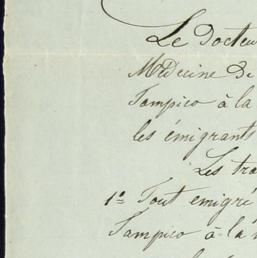 Le Docteu
Médecine de
Tampico à la
les émigrants
Les tra
1º Tout emigré
Tampico à la